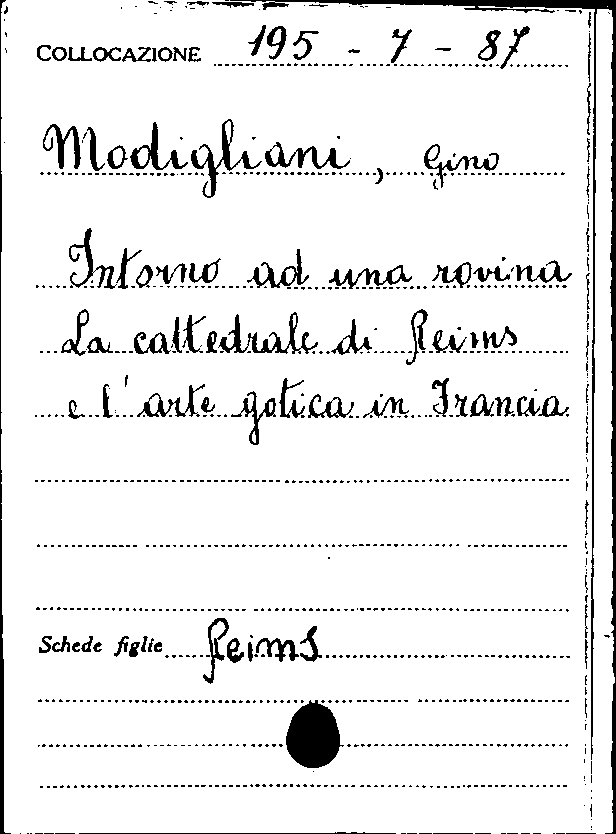 COLLOCAZIONE 195 - 7 - 87
Modigliani, Gino
Intorno ad una rovina
La cattedrale di Reims
e l'arte gotica in Francia
Schede figlie Reims